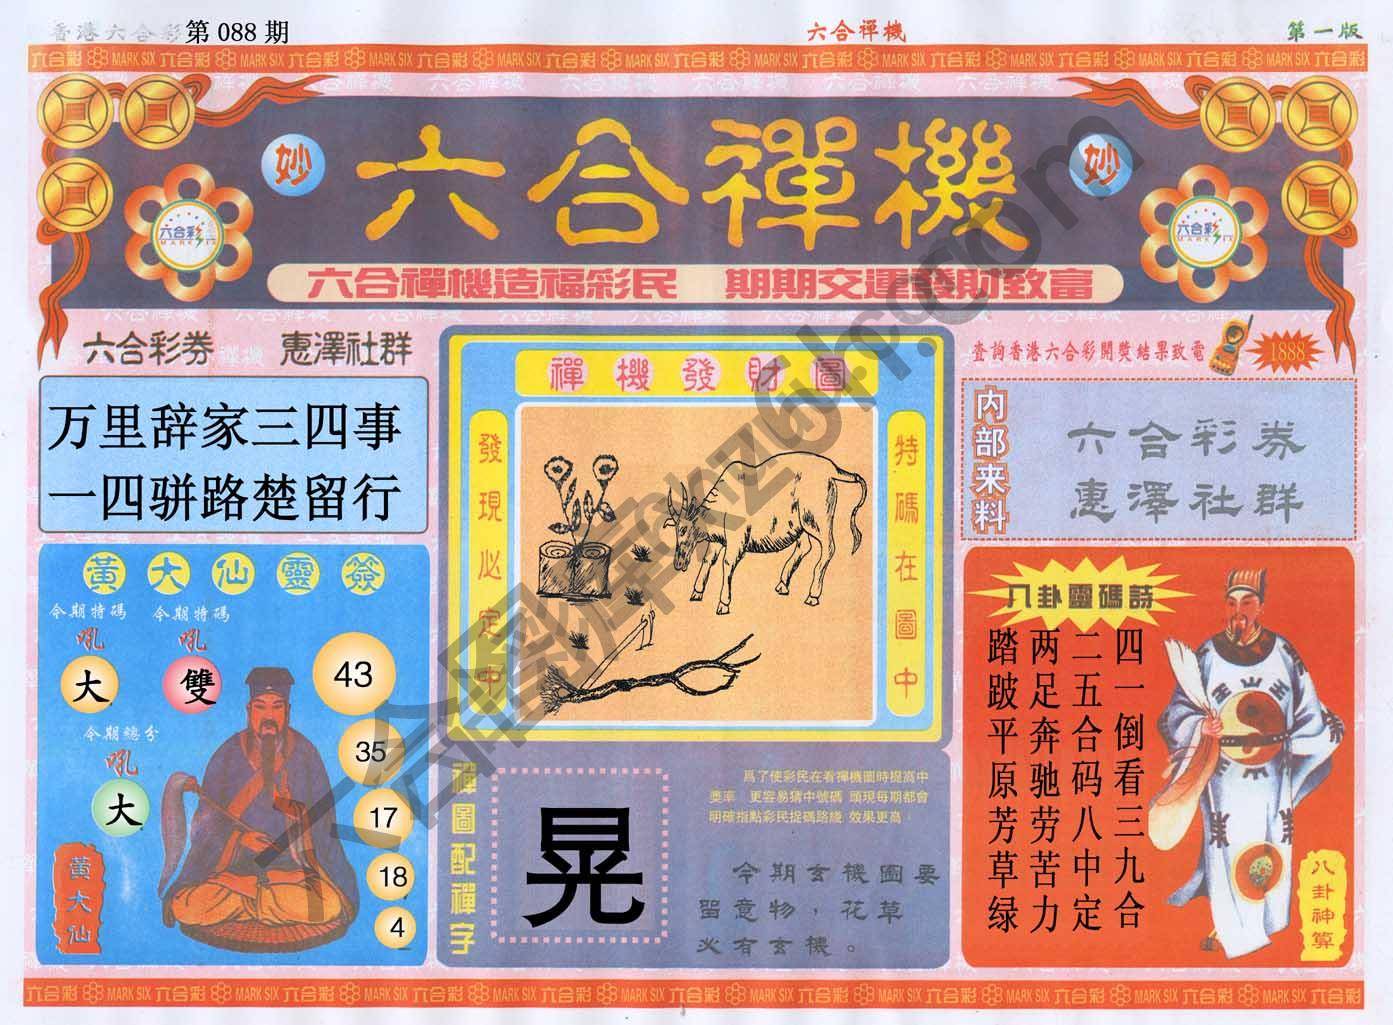 香港六合彩第 088 期
六合禪機
第一版
六合彩 MARK SIX 六合彩 MARK SIX 六合彩 MARK SIX 六合彩 MARK SIX 六合彩 MARK SIX 六合彩 MARK SIX 六合彩 MARK SIX 六合彩
妙 六合禪機 妙
六合彩 MARK SIX
六合彩 MARK SIX
六合禪機造福彩民 期期交運發財致富
六合彩券 惠澤社群
万里辞家三四事
一四骈路楚留行
黃大仙靈簽
今期特碼 今期特碼
吼 吼
大 雙
今期總分
吼
大
43
35
17
18
4
黃大仙
禪機發財圖
發現必定中
特碼在圖中
禪圖配禪字
晃
爲了使彩民在看禪機圖時提高中
獎率 更容易猜中號碼 頭現每期都會
明確指點彩民捉碼路綫 效果更高
今期玄機圖要
留意物，花草
必有玄機。
查詢香港六合彩開獎結果致電
1888
内部来料
六合彩券
惠澤社群
八卦靈碼詩
四一倒看三九合
二五合码八中定
两足奔驰劳苦力
踏跛平原芳草绿
八卦神算
六合彩 MARK SIX 六合彩 MARK SIX 六合彩 MARK SIX 六合彩 MARK SIX 六合彩 MARK SIX 六合彩 MARK SIX 六合彩 MARK SIX 六合彩